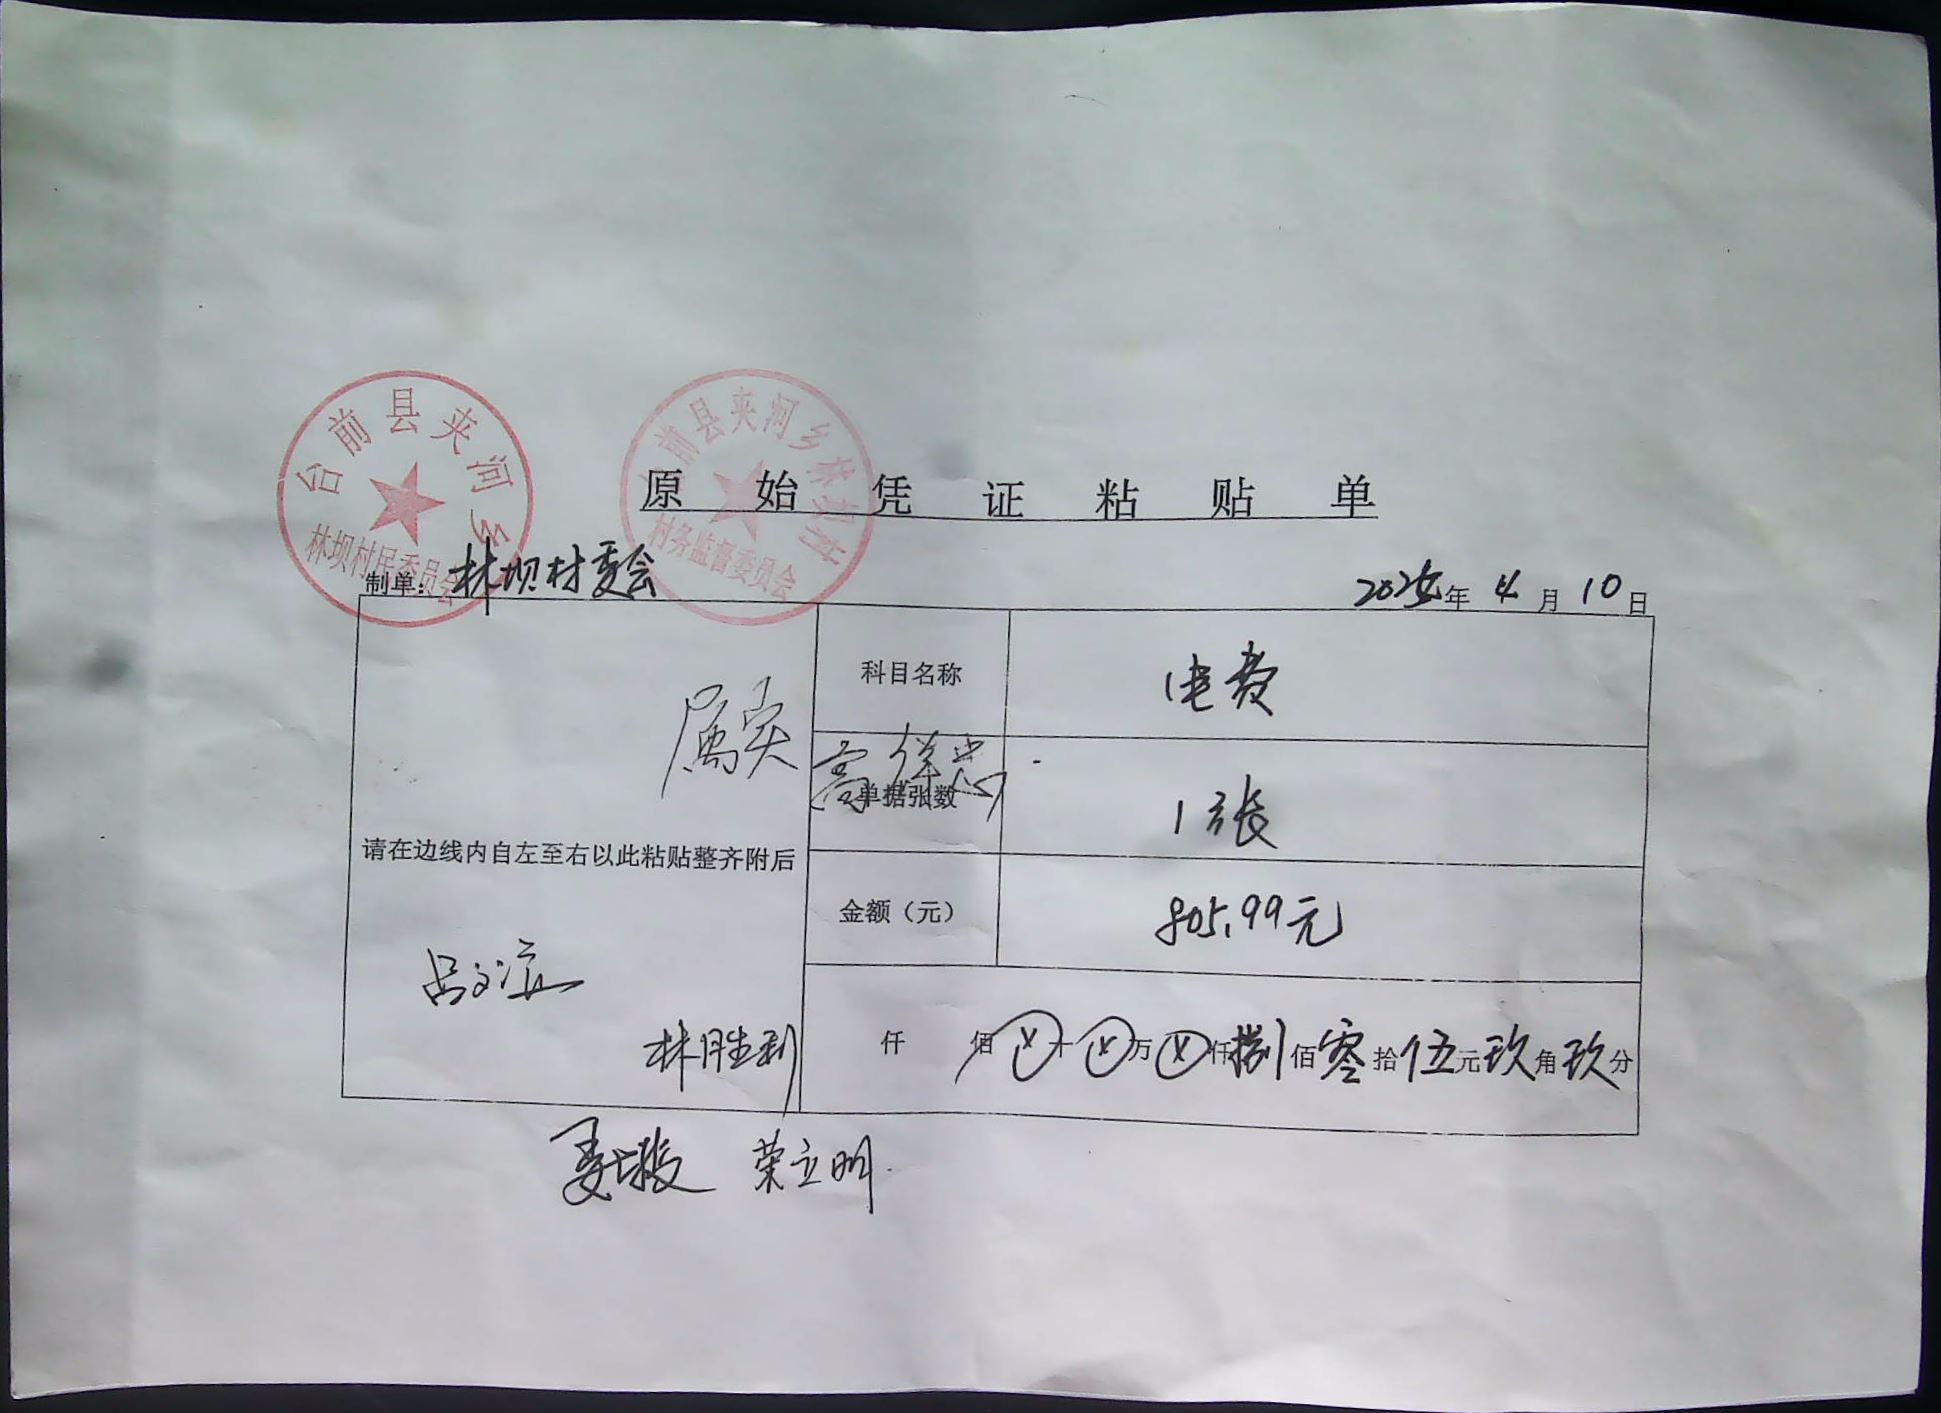 台前县夹河乡
林坝村民委员会
台前县夹河乡林坝村
村务监督委员会
原始凭证粘贴单
制单：林坝村委会 2025年4月10日
科目名称 电费
属实 高祥忠
单据张数 1张
请在边线内自左至右以此粘贴整齐附后
金额（元） 805.99元
仟佰十万仟捌佰零拾伍元玖角玖分
林胜利
荣立明